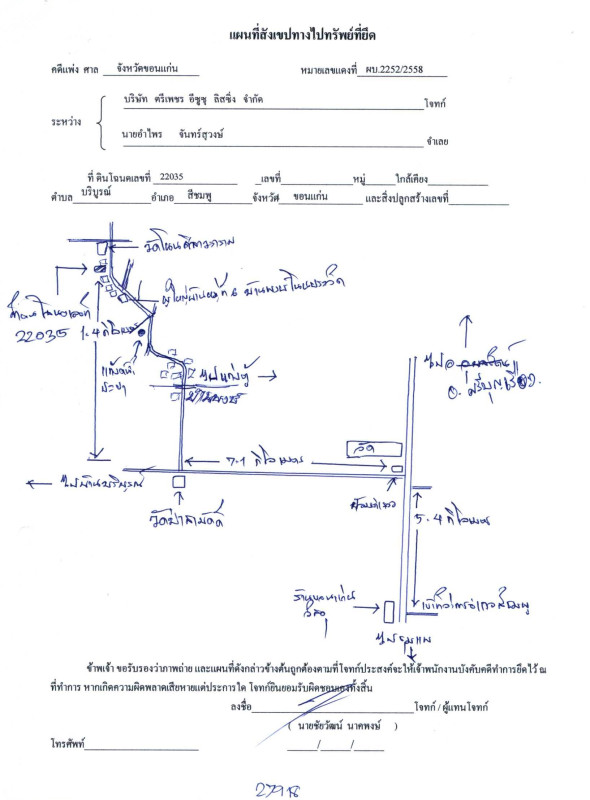 แผนที่สังเขปทางไปทรัพย์ที่ยึด
คดีแพ่ง ศาล จังหวัดขอนแก่น หมายเลขแดงที่ ผบ.2252/2558
บริษัท ตรีเพชร อีซูซุ ลิสซิ่ง จำกัด โจทก์
ระหว่าง
นายอำไพร จันทร์สุวงษ์ จำเลย
ที่ ดินโฉนดเลขที่ 22035 เลขที่ หมู่ ใกล้เคียง
ตำบล บริบูรณ์ อำเภอ สีชมพู จังหวัด ขอนแก่น และสิ่งปลูกสร้างเลขที่
22035 1.4 กิโลเมตร
ประปา
7.1 กิโลเมตร
วัด
อ. ศรีบุญเรือง
ไปบ้านบริบูรณ์
วัดป่าสามัคคี
5.4 กิโลเมตร
ไปชุมแพ
ข้าพเจ้า ขอรับรองว่าภาพถ่าย และแผนที่ดังกล่าวข้างต้นถูกต้องตามที่โจทก์ประสงค์จะให้เจ้าพนักงานบังคับคดีทำการยึดไว้ ณ
ที่ทำการ หากเกิดความผิดพลาดเสียหายแต่ประการใด โจทก์ยินยอมรับผิดชอบเองทั้งสิ้น
ลงชื่อ โจทก์ / ผู้แทนโจทก์
( นายชัยวัฒน์ นาคพงษ์ )
โทรศัพท์ / /